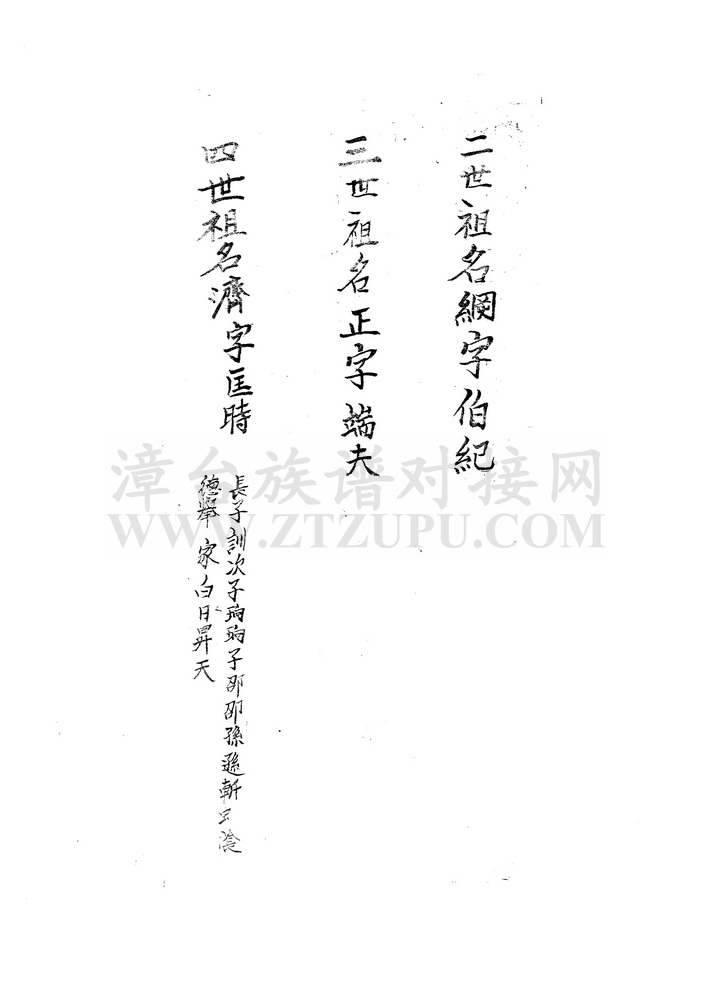 二世祖名綱字伯紀
三世祖名正字端夫
四世祖名濟字匡時
長子訓次子珦珦子邵邵孫遜斬
德舉家白日昇天
漳台族谱对接网
WWW.ZTZUPU.COM